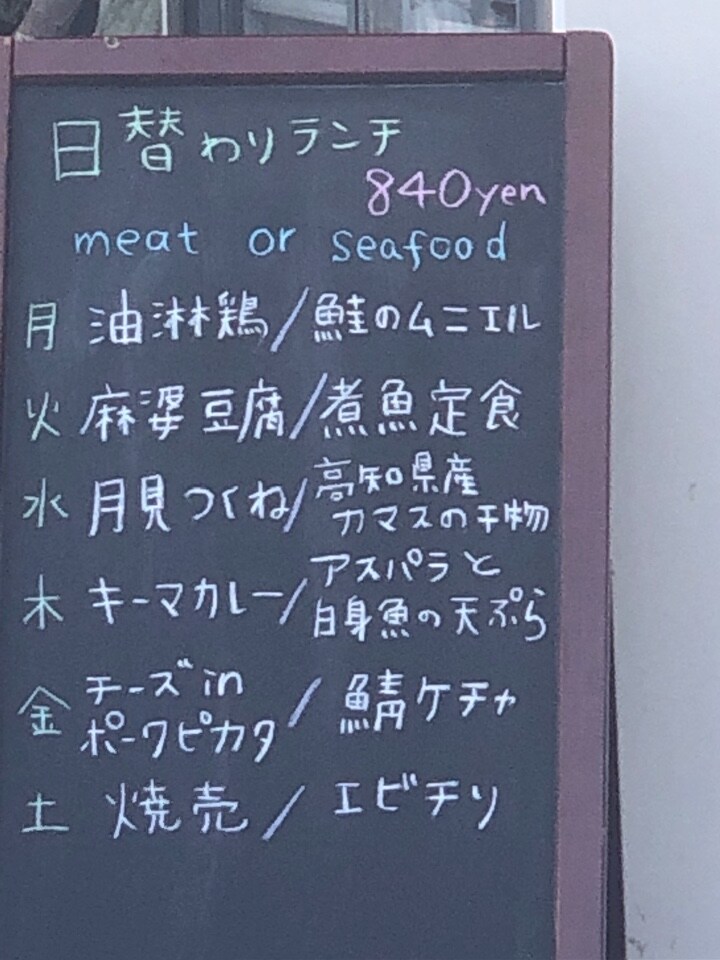 日替わりランチ
840yen
meat or seafood
月 油淋鶏/鮭のムニエル
火 麻婆豆腐/煮魚定食
水 月見つくね/高知県産
カマスの干物
木 キーマカレー/アスパラと
白身魚の天ぷら
金 チーズin
ポークピカタ/鯖ケチャ
土 焼売/エビチリ